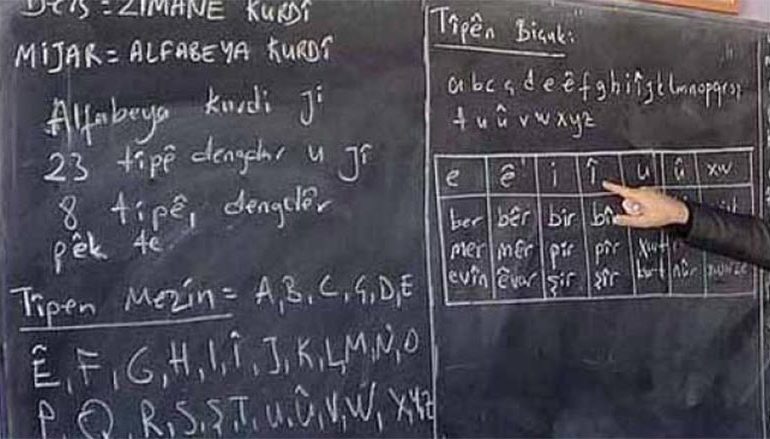 Ders = ZIMANE KURDÎ
MIJAR = ALFABEYA KURDÎ
Alfabeya kurdi ji
23 tîpê dengdar u jî
8 tipê, dengdêr
pêk te
Tîpen Mezin = A, B, C, Ç, D, E
Ê, F, G, H, I, Î, J, K, L, M, N, O
P, Q, R, S, Ş, T, U, Û, V, W, X, Y, Z
Tîpên Biçuk:
a b c ç d e ê f g h i î j k l m n o p q r s ş
t u û v w x y z
e ê i î u û xw
ber bêr bir
mer mêr pir pîr
evîn êvar şir şîr kurt nûr